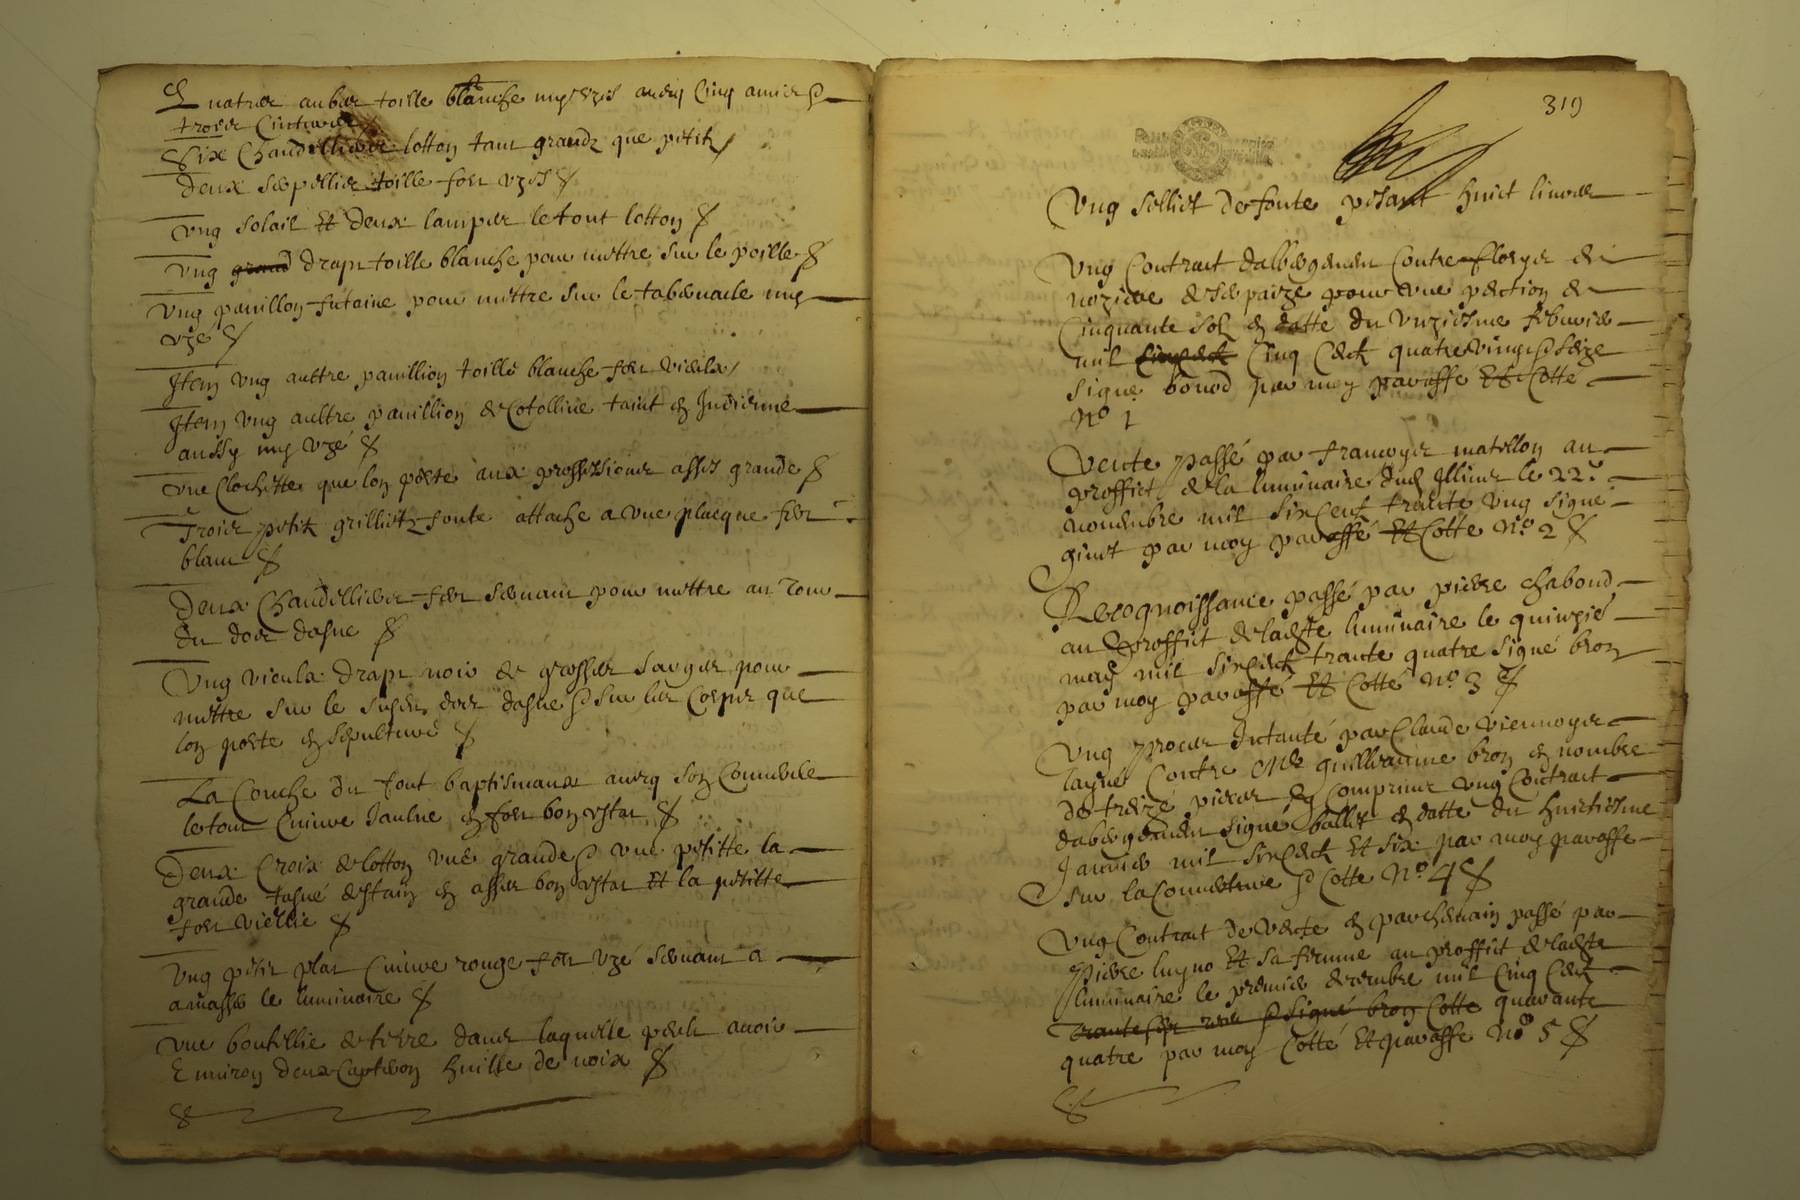 Quatres aubes toille blanche my uzés avecq cinq amicts
trois cintures
Six chandelliers lotton tant grandz que petitz
deux toille fort uzés
Ung solail Et deux lampes le tout lotton
Ung grand drapt toille blanche pour mettre sur le poille
Ung pavillon futaine pour mettre sur le tabernacle my
uzé
Item ung auttre pavillion toille blanche fort vieulx
Item ung aultre pavillion de cotolline taint en Indienne
aussy my uzé
Une clochette que lon porte aux processions asses grande
Trois petitz grillietz fonte attaché a une placque fert
blanc
Deux chandelliers fert servant pour mettre au tour
du dors dasne
Ung vieulx drapt noir de grosse sarge pour
mettre sur le dors dasne sur les corps que
lon porte en sepulture
La conche du font baptismaux avecq son couvercle
le tout cuivre jaulne en fort bon estat
Deux croix de lotton une grande une petitte la
grande destain en asses bon estat Et la petitte
fort viellie
Ung petit plat cuivre rouge fort uzé servant a
amasser le luminaire
Une boutellie de terre dans laquelle peult avoir
Environ deux carteron huille de noix
319
Ung selliet de fonte pesant huict livres
Ung contract dalbergement contre
de pour une pention de
cinquante solz en datte du unziesme febvrier
mil cinq centz quatre vingt seize
signé par moy paraffé Et cotté
No 1
Vente passé par françoys matellon au
proffict de la luminaire dud le 22e
novembre mil six cent trante ung signé
par moy paraffé Et cotté No 2
Recognoissance passé par pierre chaboud
au proffict de ladte luminaire le quinzié
mars mil six centz trante quatre signé bron
par moy paraffé Et cotté No 3
Ung proces intanté par Claude viennoys
layné contre guillaume bron en nombre
de treize pieces en comprins ung contract
dabergement signé ballet en datte du huictiesme
Janvier mil six centz Et six par moy paraffé
sur la couverture cotté No 4
Ung contract de vente en parchemin passé par
pierre Et sa femme au proffict de ladte
luminaire le premier decembre mil cinq centz
signé bron cotté quarante
quatre par moy cotté Et paraffé No 5